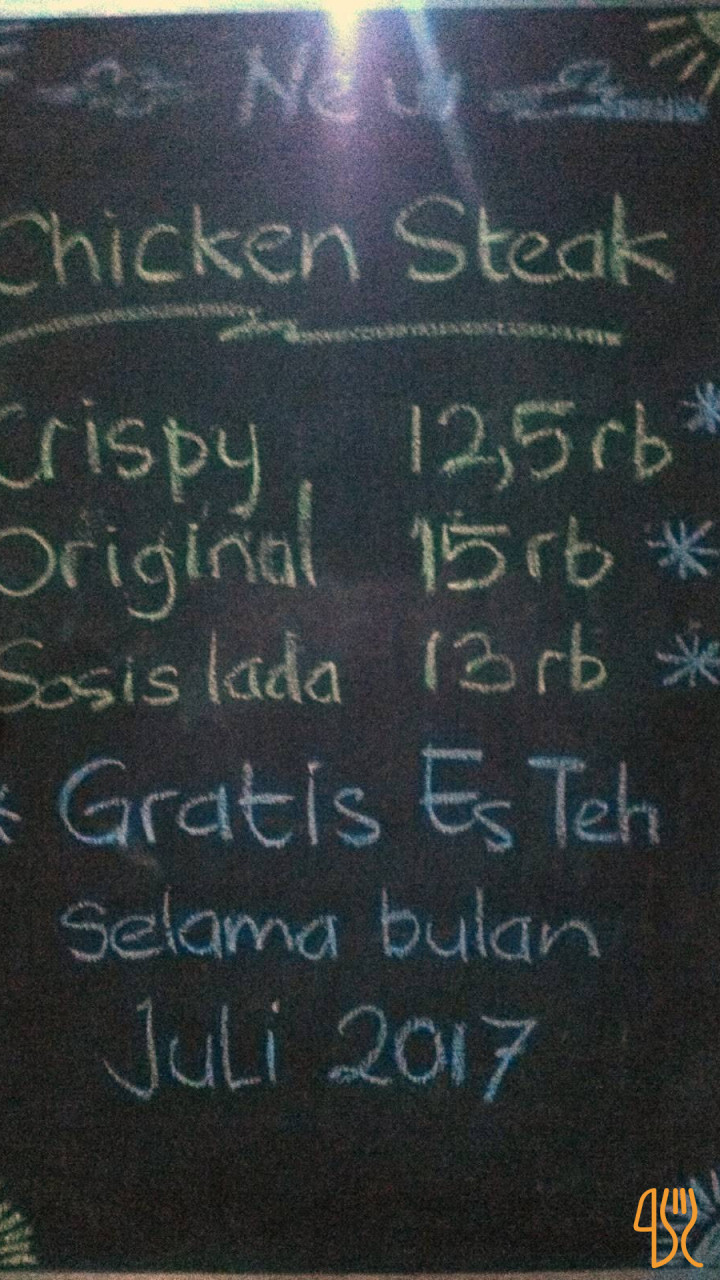 New
Chicken Steak
Crispy 12,5 rb *
Original 15 rb *
Sosis lada 13 rb *
* Gratis Es Teh
Selama bulan
Juli 2017